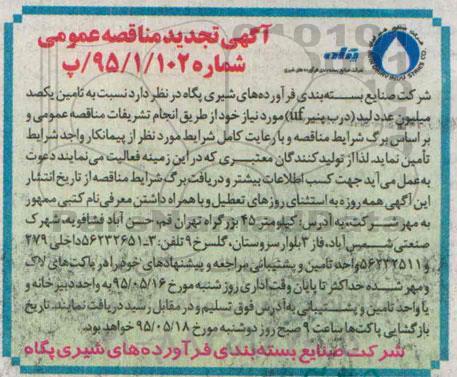 آگهی تجدید مناقصه عمومی
شماره ۹۵/۱/۱۰۲/پ
شرکت صنایع بسته‌بندی فرآورده‌های شیری پگاه در نظر دارد نسبت به تامین یکصد
میلیون عدد لید (درب پنیر uf) مورد نیاز خود از طریق انجام تشریفات مناقصه عمومی و
بر اساس برگ شرایط مناقصه و با رعایت کامل شرایط مورد نظر از پیمانکار واجد شرایط
تأمین نماید. لذا از تولیدکنندگان معتبری که در این زمینه فعالیت می‌نمایند دعوت
به‌عمل می‌آید جهت کسب اطلاعات بیشتر و دریافت برگ شرایط مناقصه از تاریخ انتشار
این آگهی همه روزه به استثنای روزهای تعطیل و با همراه داشتن معرفی‌نامه کتبی ممهور
به مهر شرکت، به آدرس: کیلومتر ۴۵ بزرگراه تهران قم، حسن آباد فشافویه، شهرک
صنعتی شمس‌آباد، فاز ۳ بلوار سروستان، گلسرخ ۹ تلفن: ۳-۵۶۲۳۲۶۵۱ داخلی ۲۷۹
و ۵۶۲۳۲۵۱۱ واحد تامین و پشتیبانی مراجعه و پیشنهادهای خود را در پاکت‌های لاک
و مهر شده حداکثر تا پایان وقت اداری روز شنبه مورخ ۹۵/۰۵/۱۶ به واحد دبیرخانه و
یا واحد تامین و پشتیبانی به‌آدرس فوق تسلیم و در مقابل رسید دریافت نمایند. تاریخ
بازگشایی پاکت‌ها ساعت ۹ صبح روز دوشنبه مورخ ۹۵/۰۵/۱۸ خواهد بود.
شرکت صنایع بسته‌بندی فرآورده‌های شیری پگاه